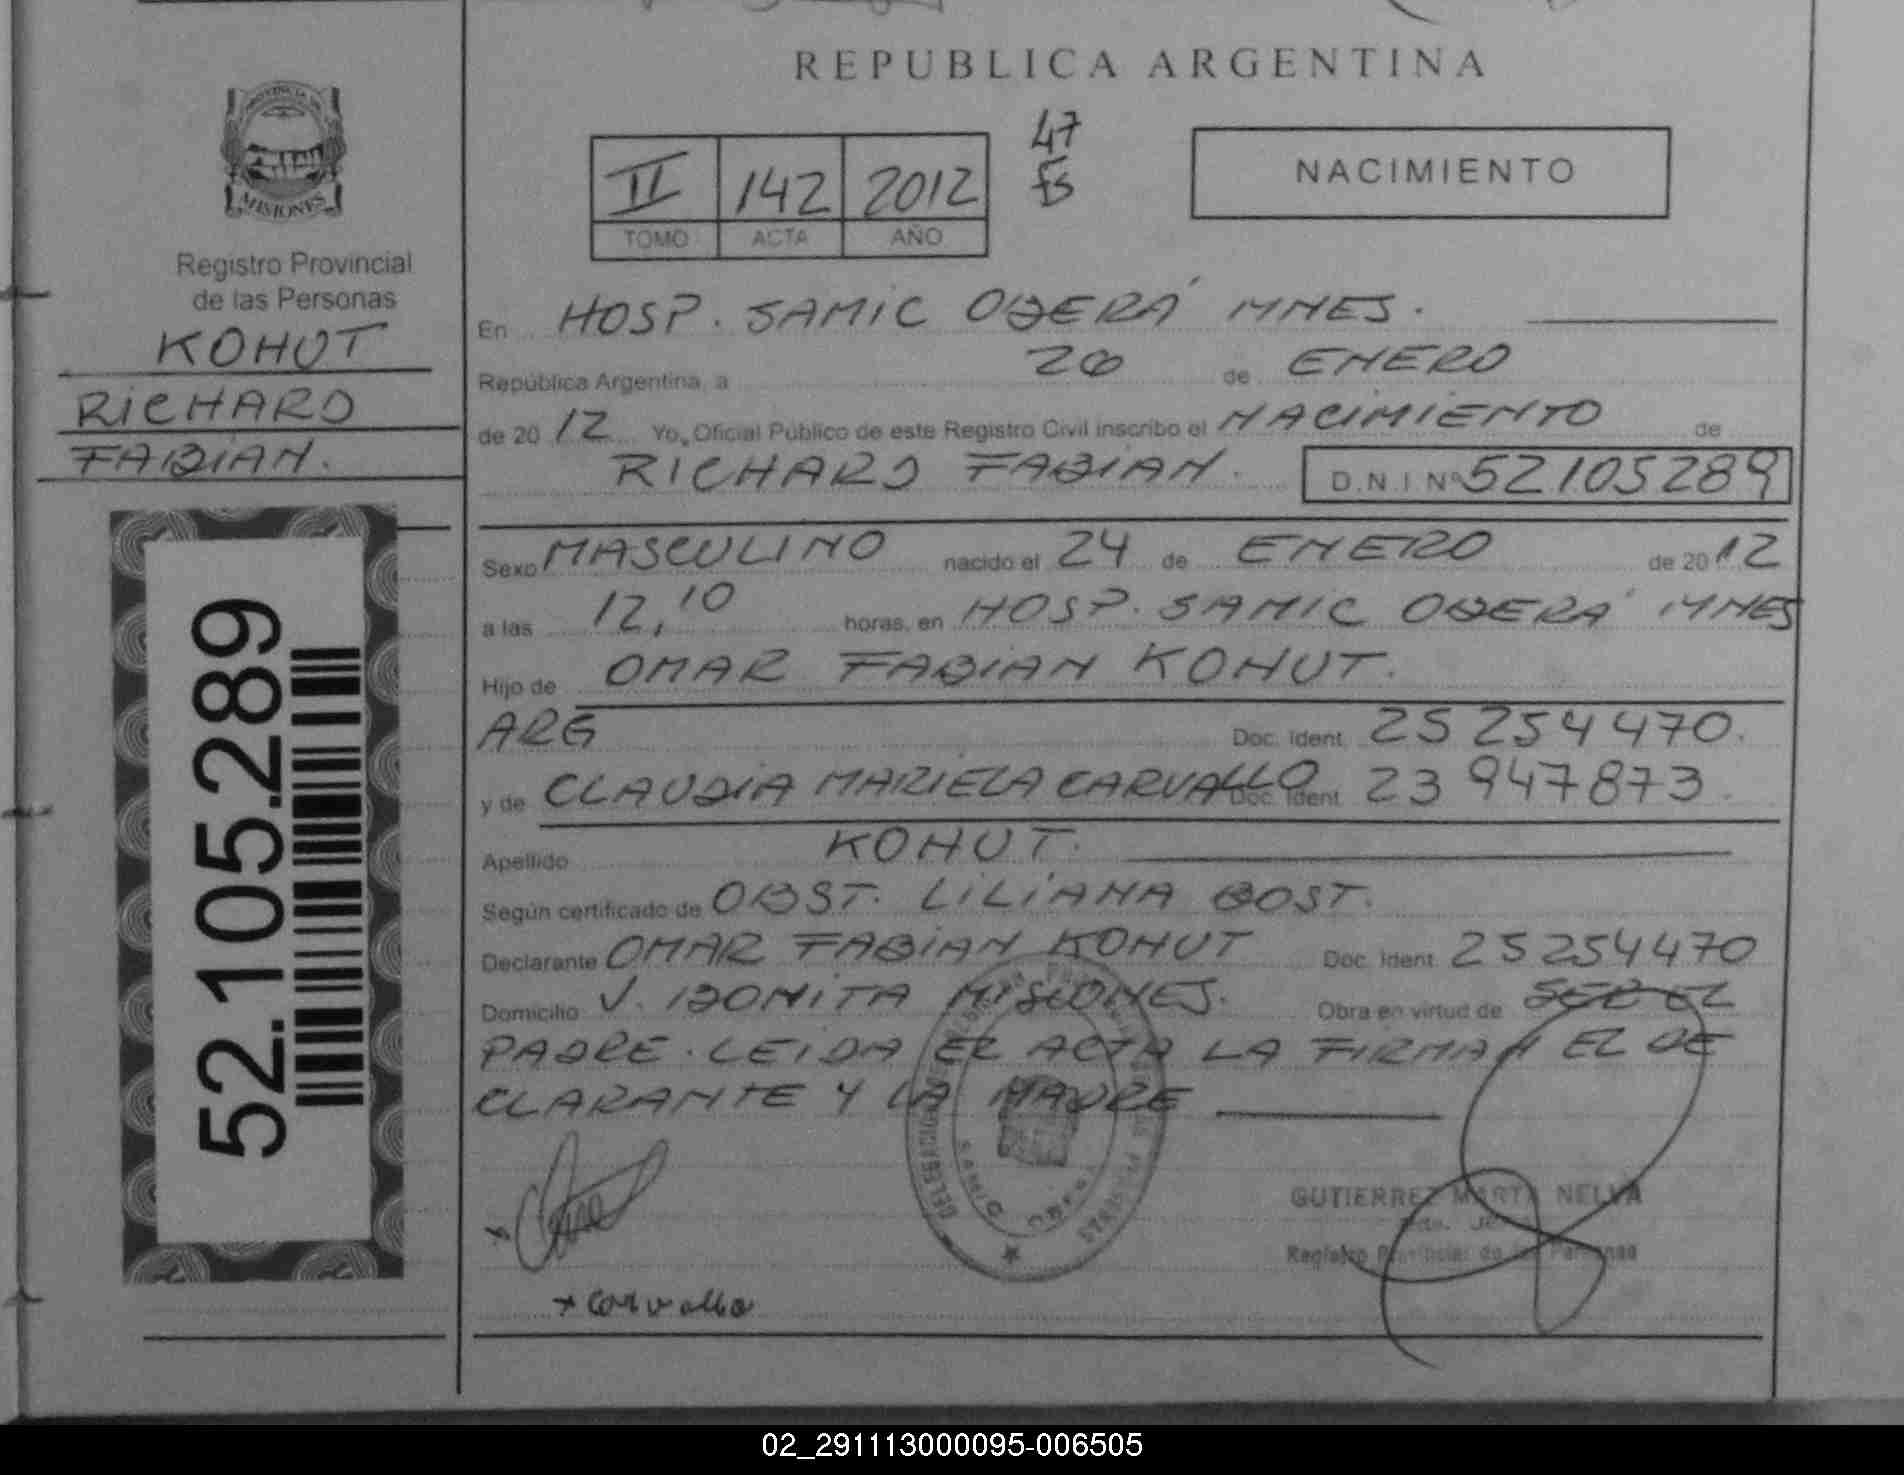 REPUBLICA ARGENTINA
PROVINCIA DE
MISIONES
Registro Provincial
de las Personas
KOHUT
RICHARD
FABIAN.
52.105.289
II 142 2012
TOMO ACTA AÑO
47
Fs
NACIMIENTO
En HOSP. SAMIC OBERÁ MNES.
República Argentina, a 26 de ENERO
de 20 12 Yo, Oficial Público de este Registro Civil inscribo el NACIMIENTO de
RICHARD FABIAN. D.N.I Nº 52105289
Sexo MASCULINO nacido el 24 de ENERO de 20 12
a las 12,10 horas, en HOSP. SAMIC OBERÁ MNES
Hijo de OMAR FABIAN KOHUT.
ARG Doc. Ident. 25 254 470.
y de CLAUDIA MARIELA CARVALLO Doc. Ident. 23 947873.
Apellido KOHUT.
Según certificado de OBST. LILIANA BOST.
Declarante OMAR FABIAN KOHUT Doc. Ident. 25254470
Domicilio V. BONITA MISIONES. Obra en virtud de SER EL
PADRE. LEIDA EL ACTA LA FIRMAN EL DE
CLARANTE Y LA MADRE
GUTIERREZ MARTA NELVA
Registro Provincial de las Personas
x Carvallo
02_291113000095-006505